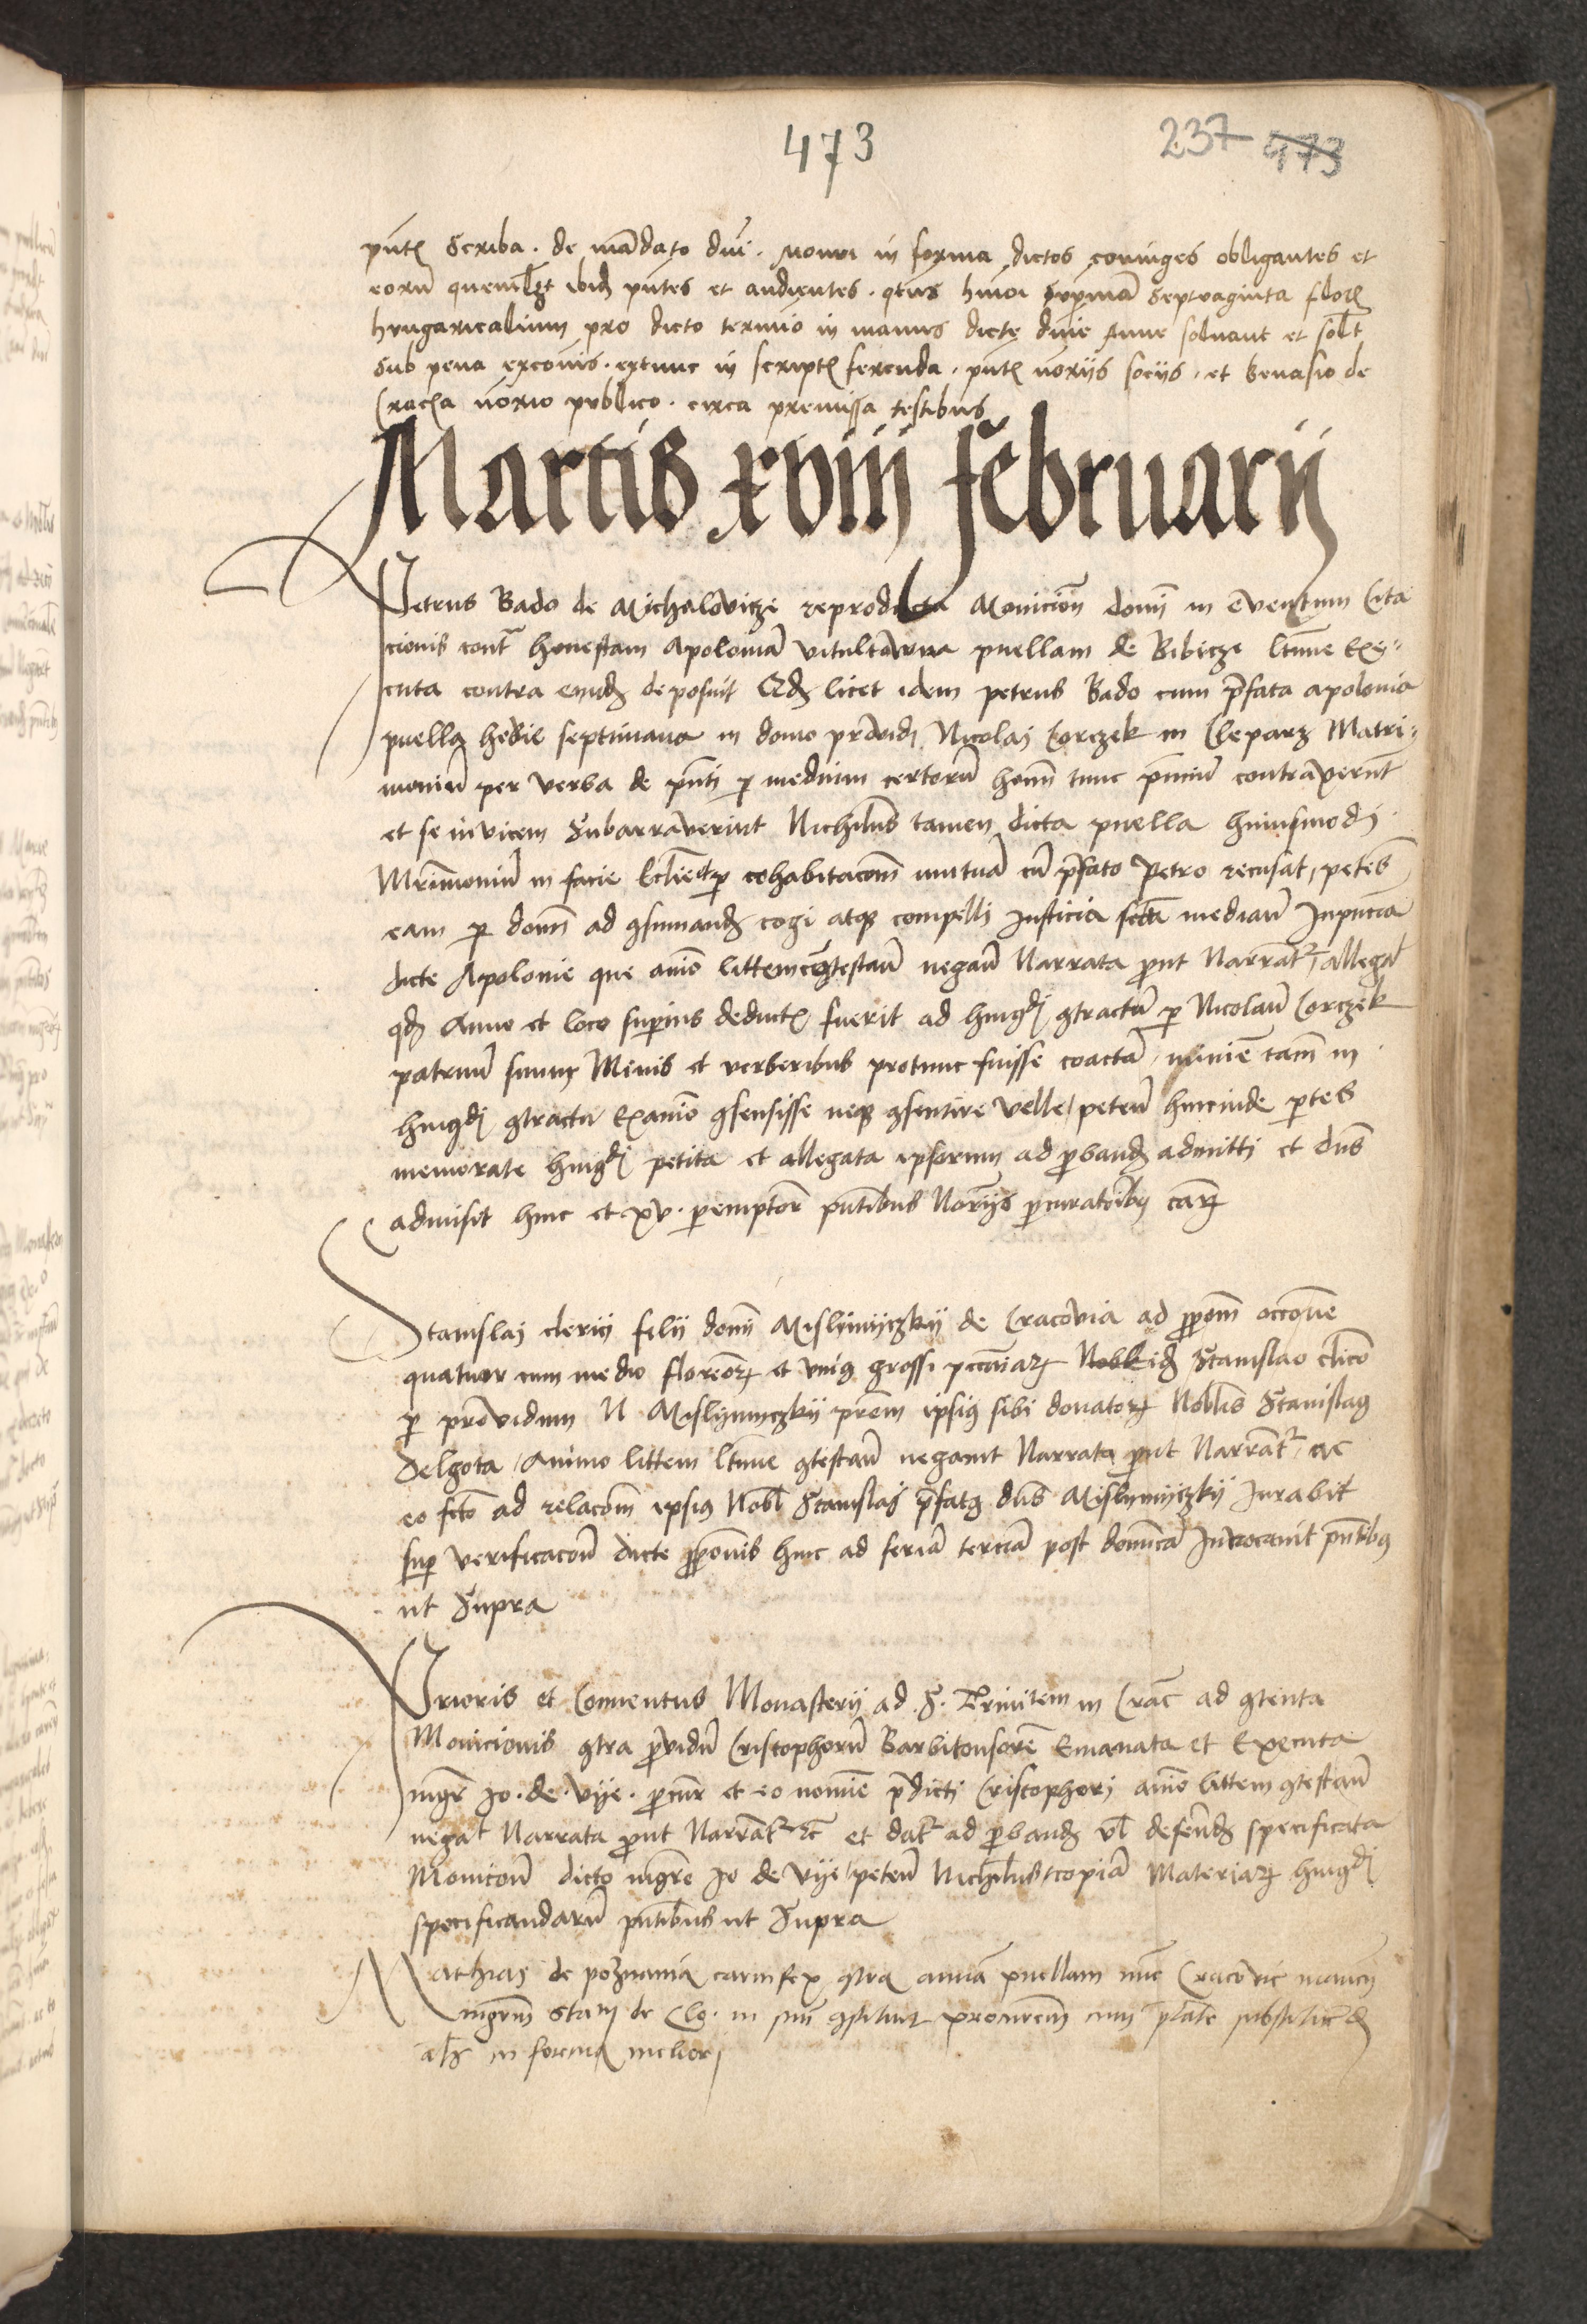 473
237 473
pntes Scriba. de mandato dni. monui in forma dictos coniuges obligantes et
eorum quemlibet ibidem pntes et audientes. qtus hmoi summa septuaginta floren
hungaricalium pro dicto termino in manus dicte dnie Anne soluant et solt
sub pena excois. extunc in scriptis ferenda. pntibus noriis sociis. et Benasio de
Cracia norio publico. circa premissa testibus
Martis xviij februarij
Petrus Bado de Michalovicze reproducta Monicion domi in eventum Cita
cionis contra honestam Apoloniam puellam de Bibicze ltime Exe-
cuta contra eandem deposuit Qd licet idem petrus Bado cum prefata apolonia
puella hedie septimana in domo providi Nicolai Corczek in Cleparz Matri-
monium per verba de pnti per medium certorum homi tunc pncium contraxerunt
et se invicem Subarraverint Nichilus tamen dicta puella huiusmodi
Mrimonium in facie Eclie et per cohabitacom mutuam cum prefato Petro recusat, petens
eam per domi ad consumandum cogi atque compelli Justicia mediante Inpncia
dicte Apolonie que animo littem contestan negan Narrata prout Narrant, allegat
qd Anno et loco superius deductis fuerit ad huiusmodi contractum per Nicolaum Corczek
patruum suum Minis et verberibus protunc fuisse coactam, minime tamen in
huiusmodi contractu Exanimo consensisse neque consentire velle, peten hincinde partes
memorate huiusmodi petita et allegata ipsorum ad probandum admitti et dns
admisit hinc et xv. peremptor pntibus Noriis procuratoribus causarum
Stanislai clerici filii domi Mislymyczky de Cracovia ad proposicionem occone
quatuor cum medio florenorum et unius grossi pecuniarum eidem Stanislao clico
per providum N Mislymyczky prem ipsius sibi donatorum Nobilis Stanislaus
Delgota, Animo littem ltime contestan negavit Narrata prout Narrantur, ac
eo fcto ad relacom ipsius Nobl Stanislai prefatus dns Mislymyczky Jurabit
super verificacom dicte proposicionis hinc ad feriam terciam post dominicam Invocavit pntibus
ut Supra
Prioris et Conventus Monasterii ad S. Trinitem in Crac ad contenta
Monicionis contra providum Cristophorum Barbitonsorem Emanata et Executa
mgr Jo. de. Vije. procur et eo nomine predicti Cristophori animo littem contestan
negat Narrata prout Narrantur etc et datur ad probandum vel defendendum specificata
Monicom dicto mgro Jo de Vije, peten Nichilus copiam Materiarum huiusmodi
specificandarum pntibus ut Supra
Mathias de poznania carnifex contra annam puellam nunc Cracovie manen
mgrm Stan de in suum constituit procurem cum ptate substituendi
als in forma meliori